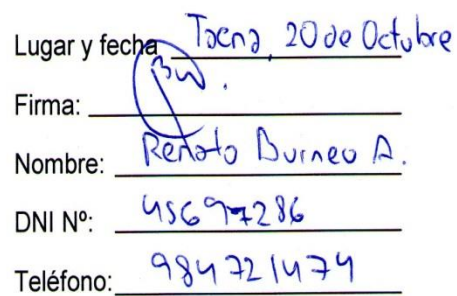 Lugar y fecha Tacna, 20 de Octubre
Firma:
Nombre: Renato Burneo A.
DNI Nº: 45697286
Teléfono: 984721474